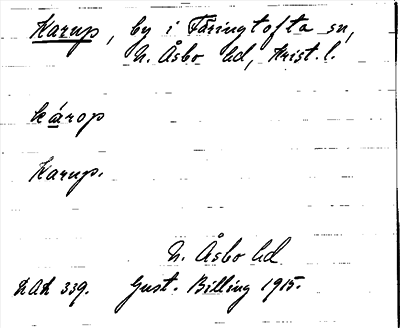 Karup, by i Färingtofta sn,
N. Åsbo hd, Krist. l.
károp
Karup.
N. Åsbo hd
LAL 339. Gust. Billing 1915.